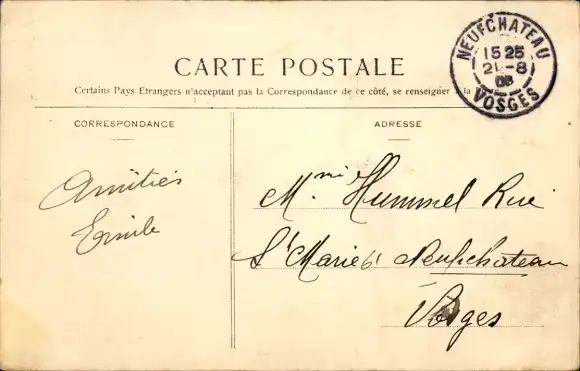 NEUFCHATEAU
15 25
21-8
VOSGES
CARTE POSTALE
Certains Pays Etrangers n'acceptant pas la Correspondance de ce côté, se renseigner à la
CORRESPONDANCE
ADRESSE
Amitiés
Emile
Mmi Hummel Rue
St Marie Neufchateau
Vosges